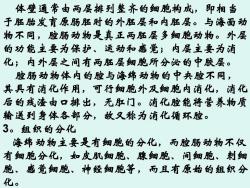 体壁通常由两层排列整齐的细胞构成，即相当
于胚胎发育原肠胚时的外胚层和内胚层。与海面动
物不同，腔肠动物是真正两胚层多细胞动物。外层
的功能主要为保护、运动和感觉；内层主要为消
化；内外层之间有两胚层细胞所分泌的中胶层。
腔肠动物体内的腔与海绵动物的中央腔不同，
其具有消化作用，可行细胞外及细胞内消化，消化
后的残渣由口排出，无肛门。消化腔能将营养物质
输送到身体各部分，故又称为消化循环腔。
3。组织的分化
海绵动物主要是有细胞的分化，而腔肠动物不仅
有细胞分化，如皮肌细胞、腺细胞、间细胞、刺细
胞、感觉细胞、神经细胞等，而且有原始的组织分
化。